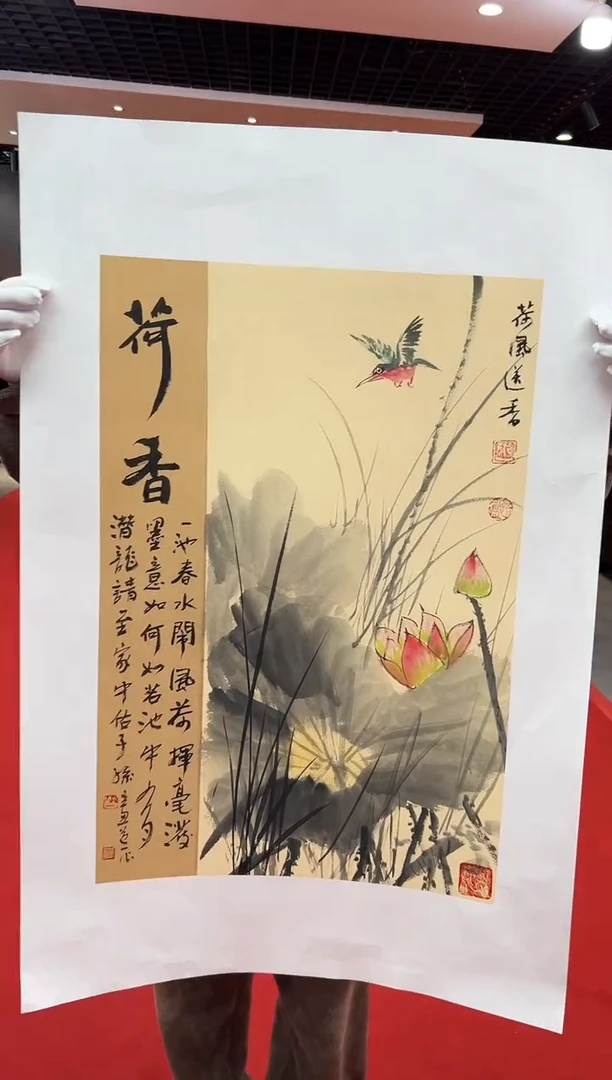 荷風送香
荷香
一池春水鬧風荷揮毫潑
墨意如何如若池中有
潛龍請至家中佑子孫